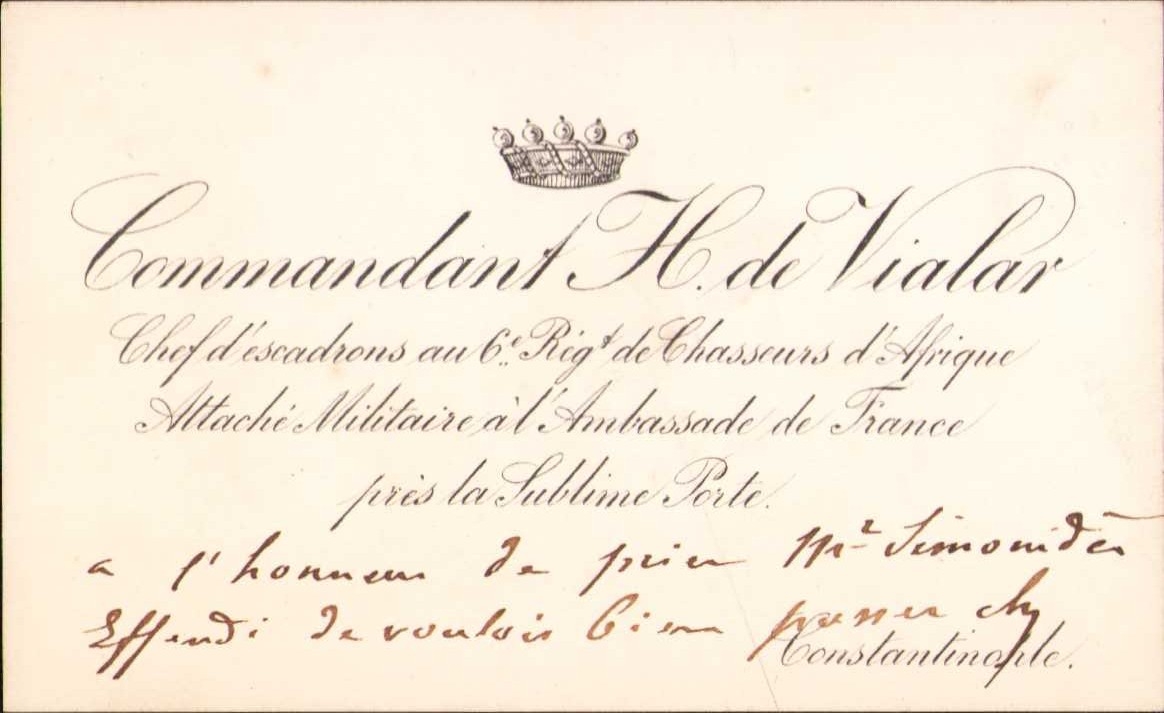 Commandant H. de Vialar
Chef d'escadrons au 6e Régt de Chasseurs d'Afrique
Attaché Militaire à l'Ambassade de France
près la Sublime Porte.
a l'honneur de prier Mr Simonidès
Effendi de vouloir bien passer chez
Constantinople.